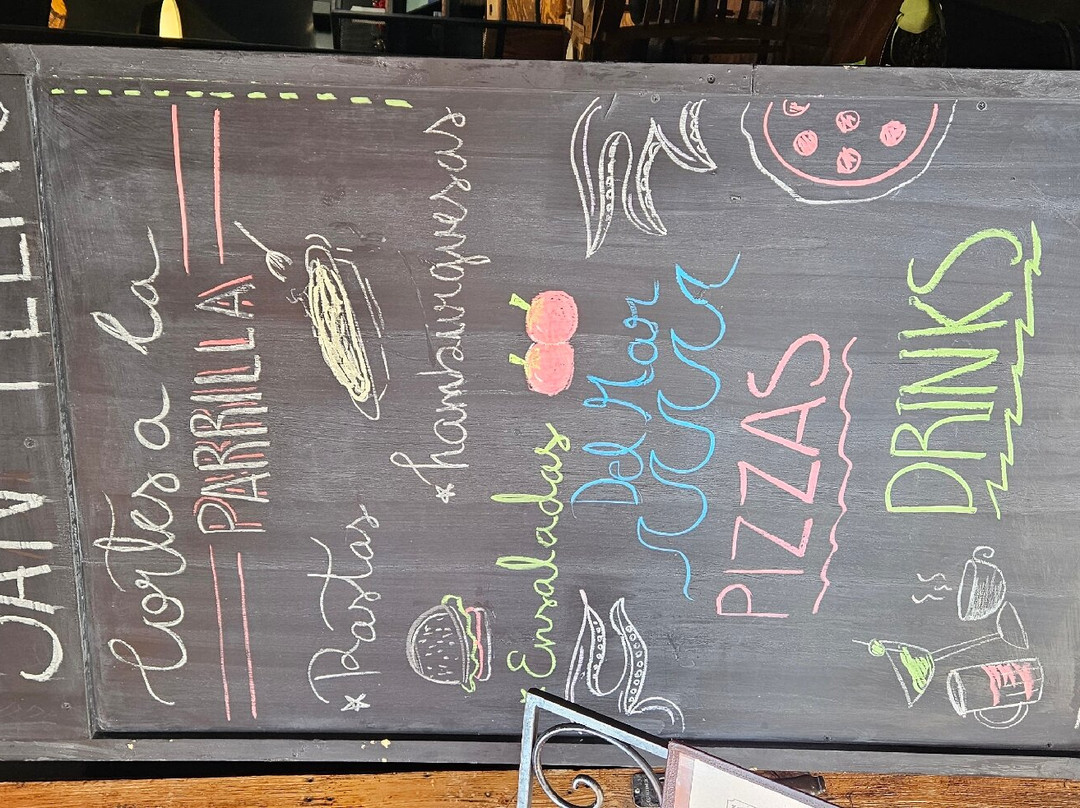 Cortes a la
PARRILLA
Pastas
hamburguesas
Ensaladas
Del Mar
PIZZAS
DRINKS